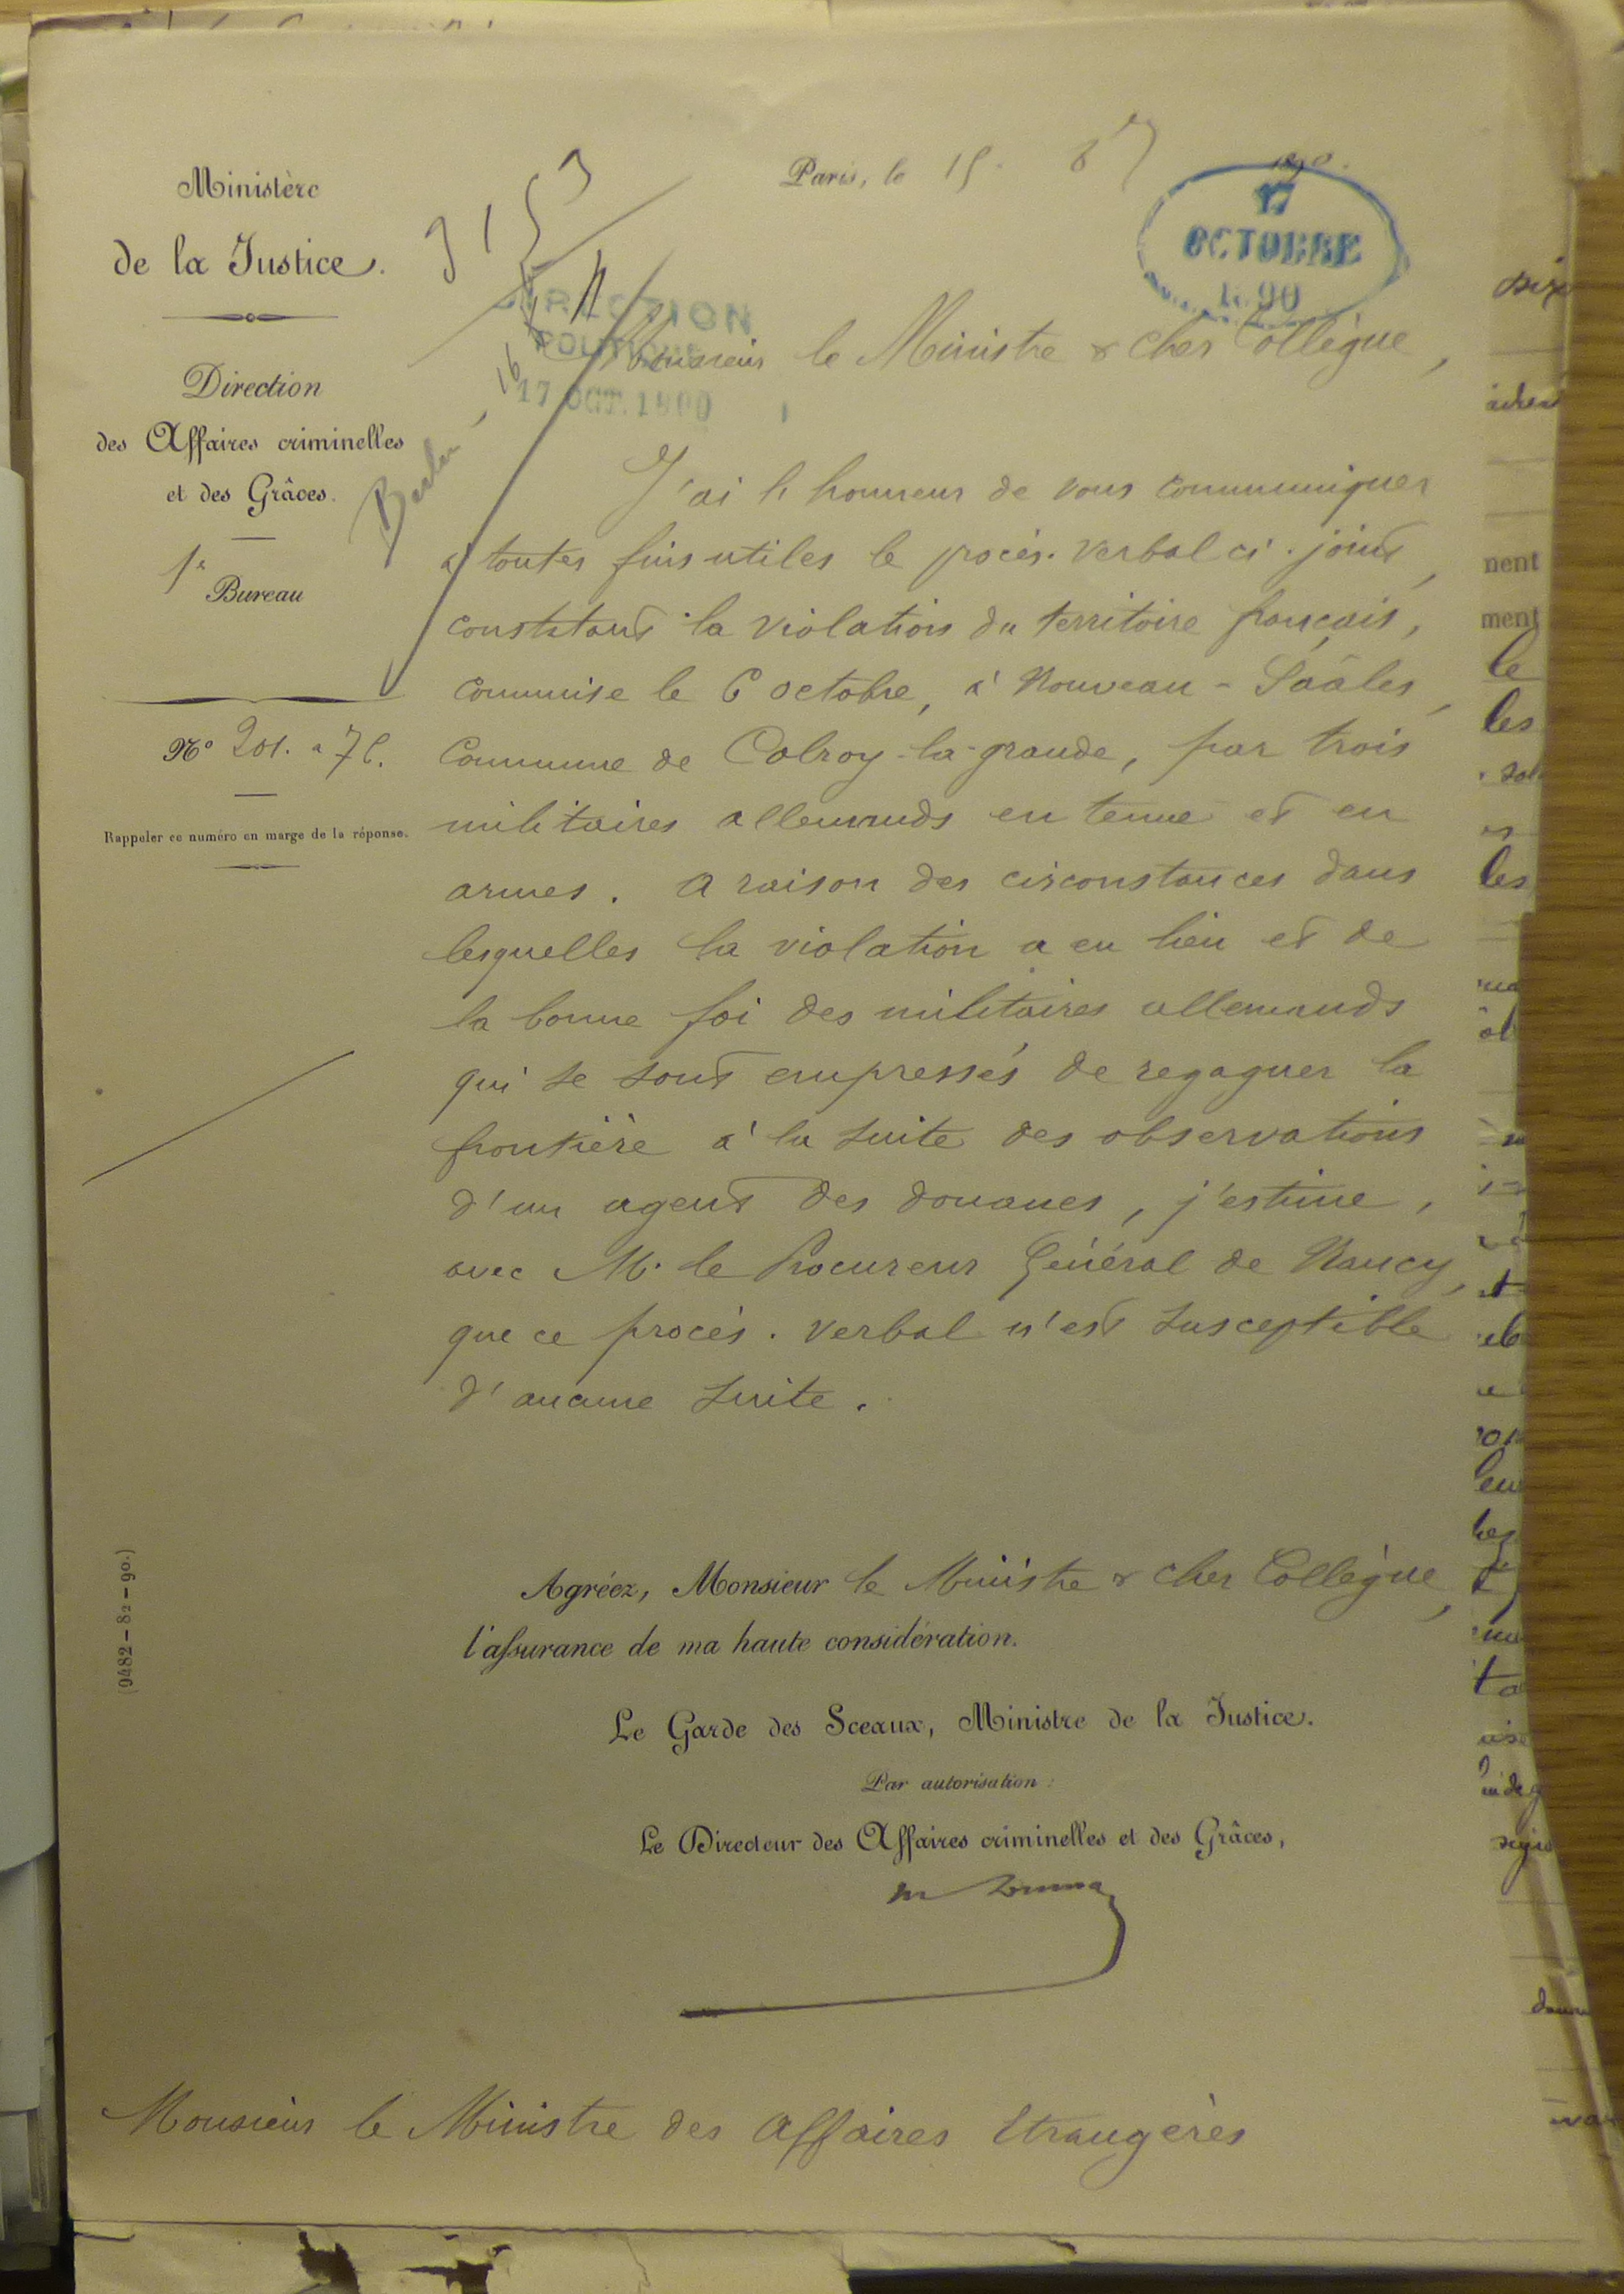 Ministère
de la Justice.
Direction
des Affaires criminelles
et des Grâces.
1er
Bureau
No 201. a 76.
Rappeler ce numéro en marge de la réponse.
(9482-82-90.)
Paris, le 15. 8
17
OCTOBRE
1890
DIRECTION
POLITIQUE
17 OCT. 1890
Monsieur le Ministre & cher Collègue,
J'ai l'honneur de vous communiquer
à toutes fins utiles le procès-verbal ci-joint,
constatant la violation du territoire français,
commise le 6 octobre, à Nouveau-Saâles,
Commune de Colroy-la-grande, par trois
militaires allemands en tenue et en
armes. A raison des circonstances dans
lesquelles la violation a eu lieu et de
la bonne foi des militaires allemands
qui se sont empressés de regagner la
frontière à la suite des observations
d'un agent des douanes, j'estime,
avec M. le Procureur Général de Nancy,
que ce procès-verbal n'est susceptible
d'aucune suite.
Agréez, Monsieur le Ministre & cher Collègue,
l'assurance de ma haute considération.
Le Garde des Sceaux, Ministre de la Justice.
Par autorisation :
Le Directeur des Affaires criminelles et des Grâces,
Monsieur le Ministre des Affaires Etrangères